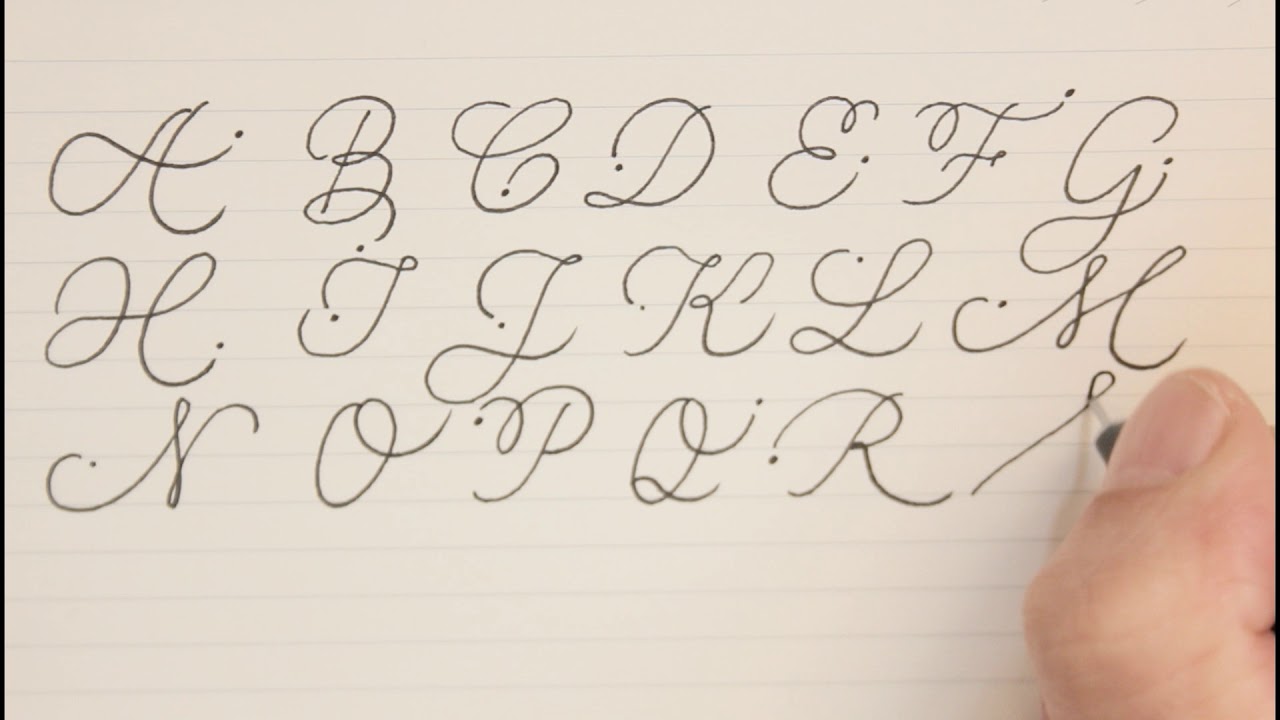 A B C D E F G
H I J K L M
N O P Q R